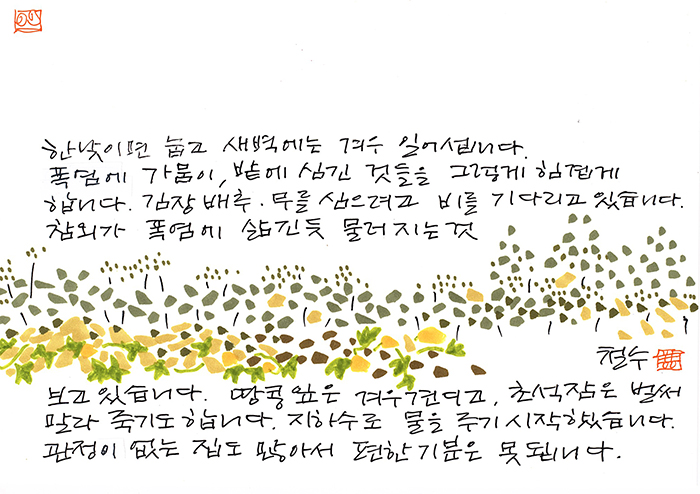 한낮이면 눕고 새벽에는 겨우 일어섭니다.
폭염에 가뭄이, 밭에 심긴 것들을 그렇게 힘겹게
합니다. 김장 배추·무를 심으려고 비를 기다리고 있습니다.
참외가 폭염에 삶긴듯 물러지는것
철수
보고있습니다. 땅콩잎은 겨우견디고, 초석잠은 벌써
말라 죽기도합니다. 지하수로 물을 주기 시작하였습니다.
관정이 없는 집도 많아서 편한 기분은 못됩니다.